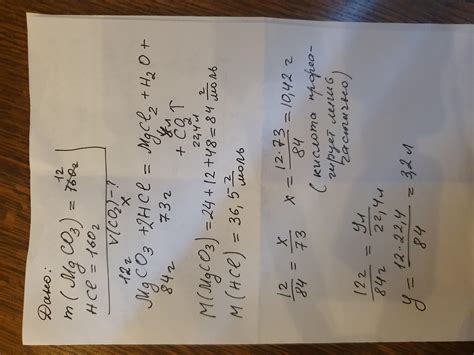 Дано:
m(MgCO3) = 12г
HCl = 160г
V(CO2) - ?
12г x
MgCO3 + 2HCl = MgCl2 + H2O +
84г 73г
yл
+ CO2↑
22,4л
M(MgCO3) = 24+12+48 = 84 г/моль
M(HCl) = 36,5 г/моль
12/84 = x/73 x = 12·73/84 = 10,42г
(кислота прореа-
гирует лишь
частично)
12г/84г = yл/22,4л
y = 12·22,4/84 = 3,2л